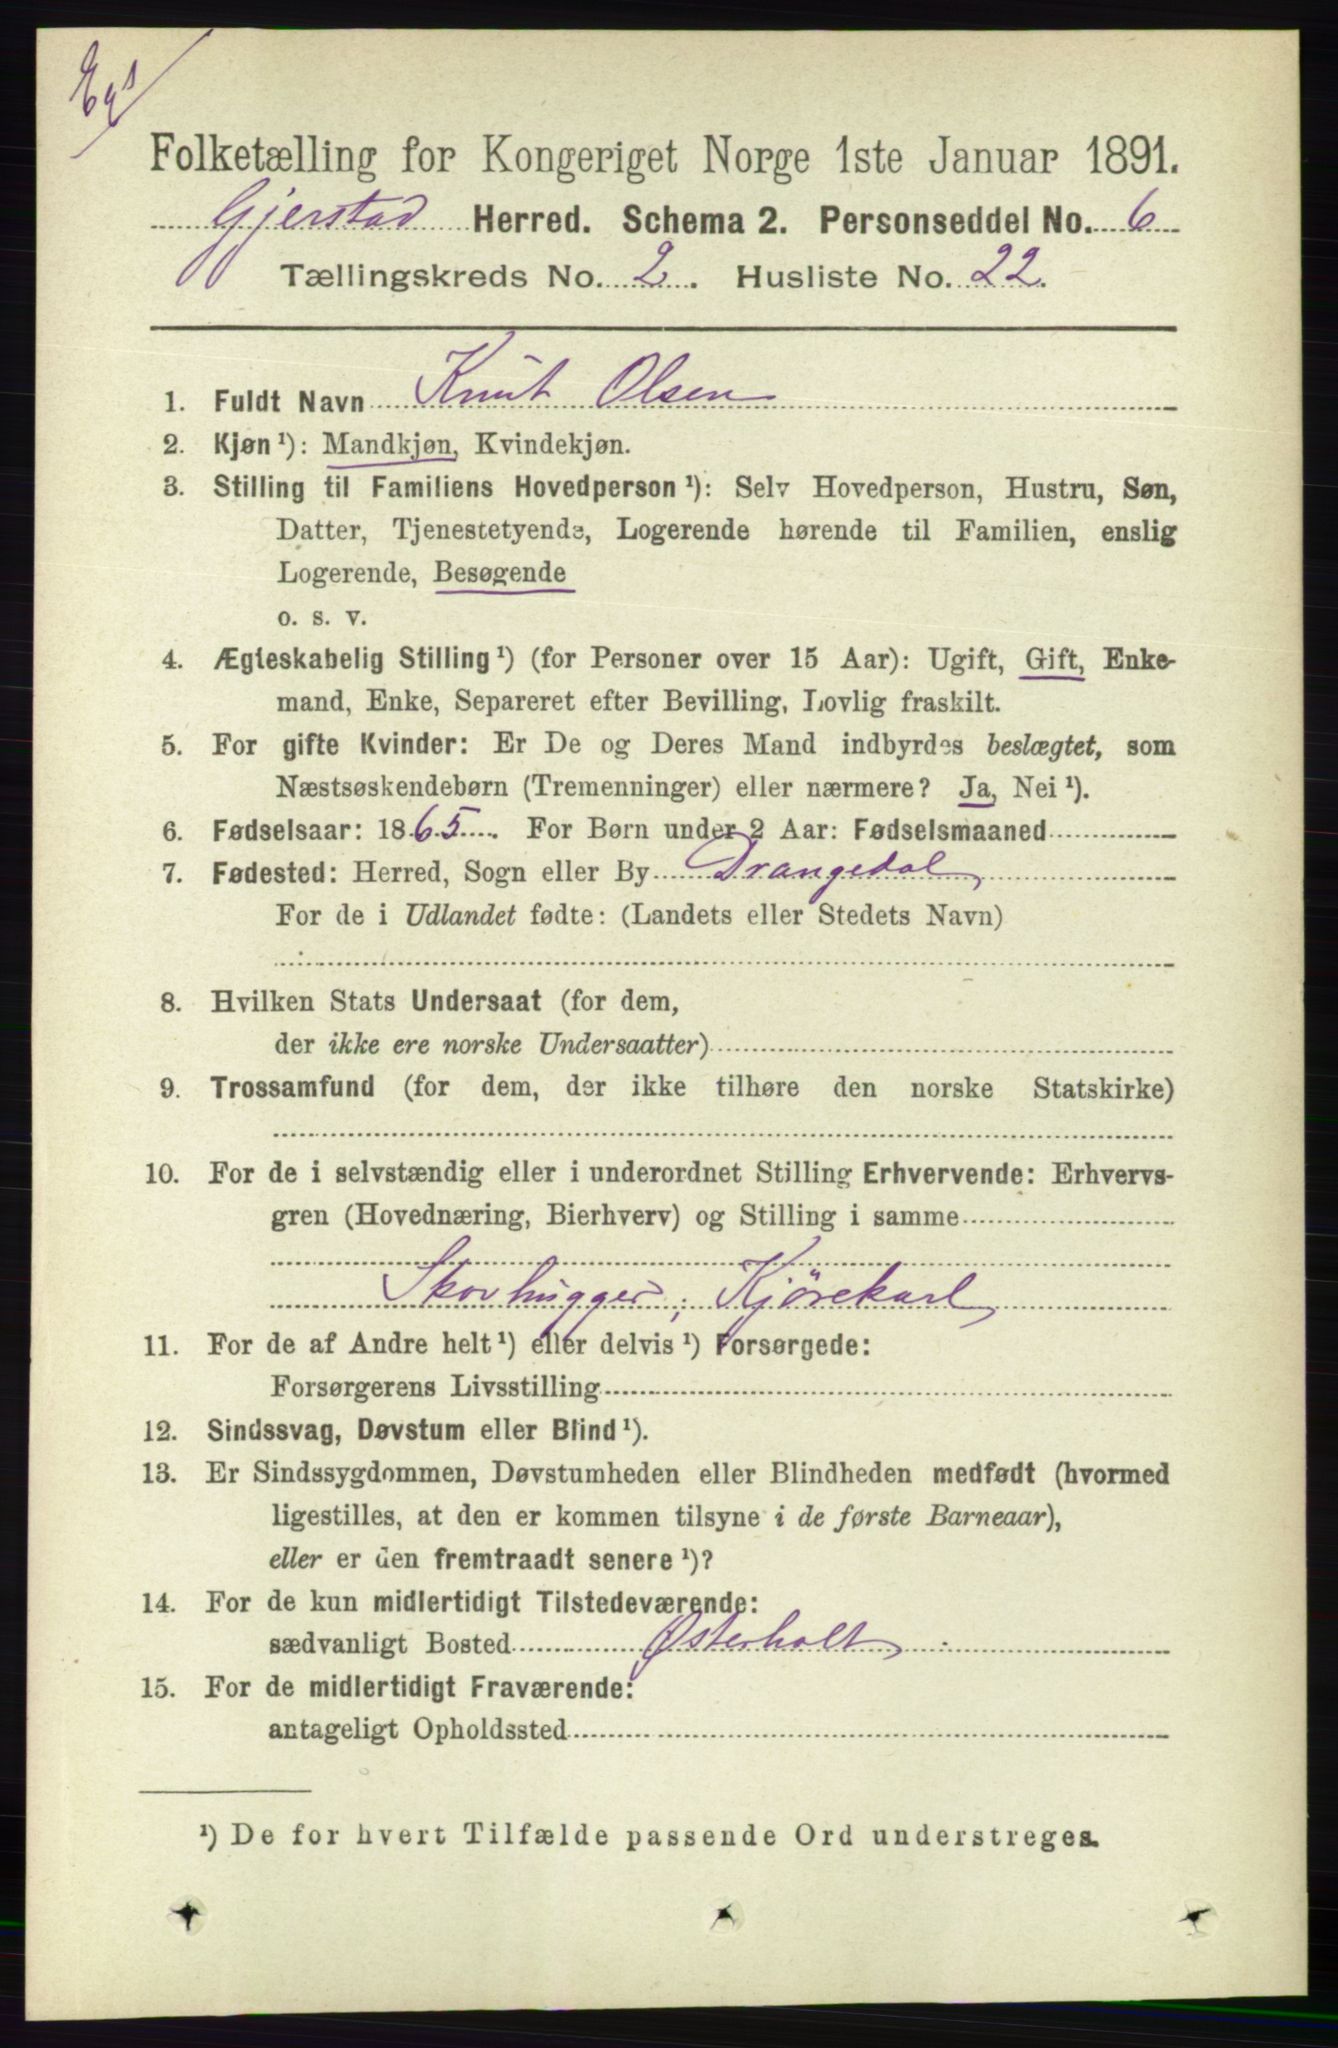 Folketælling for Kongeriget Norge 1ste Januar 1891.
Gjerstad Herred. Schema 2. Personseddel No. 6
Tællingskreds No. 2. Husliste No. 22.
1. Fuldt Navn Knut Olsen
2. Kjøn ¹): Mandkjøn, Kvindekjøn.
3. Stilling til Familiens Hovedperson ¹): Selv Hovedperson, Hustru, Søn,
Datter, Tjenestetyende, Logerende hørende til Familien, enslig
Logerende, Besøgende
o. s. v.
4. Ægteskabelig Stilling ¹) (for Personer over 15 Aar): Ugift, Gift, Enke-
mand, Enke, Separeret efter Bevilling, Lovlig fraskilt.
5. For gifte Kvinder: Er De og Deres Mand indbyrdes beslægtet, som
Næstsøskendebørn (Tremenninger) eller nærmere? Ja, Nei ¹).
6. Fødselsaar: 1865. For Børn under 2 Aar: Fødselsmaaned
7. Fødested: Herred, Sogn eller By Drangedal
For de i Udlandet fødte: (Landets eller Stedets Navn)
8. Hvilken Stats Undersaat (for dem,
der ikke ere norske Undersaatter)
9. Trossamfund (for dem, der ikke tilhøre den norske Statskirke)
10. For de i selvstændig eller i underordnet Stilling Erhvervende: Erhvervs-
gren (Hovednæring, Bierhverv) og Stilling i samme
Skovhugger, Kjörekarl
11. For de af Andre helt ¹) eller delvis ¹) Forsørgede:
Forsørgerens Livsstilling
12. Sindssvag, Døvstum eller Blind ¹).
13. Er Sindssygdommen, Døvstumheden eller Blindheden medfødt (hvormed
ligestilles, at den er kommen tilsyne i de første Barneaar),
eller er den fremtraadt senere ¹)?
14. For de kun midlertidigt Tilstedeværende:
sædvanligt Bosted Østerholt
15. For de midlertidigt Fraværende:
antageligt Opholdssted
¹) De for hvert Tilfælde passende Ord understreges.